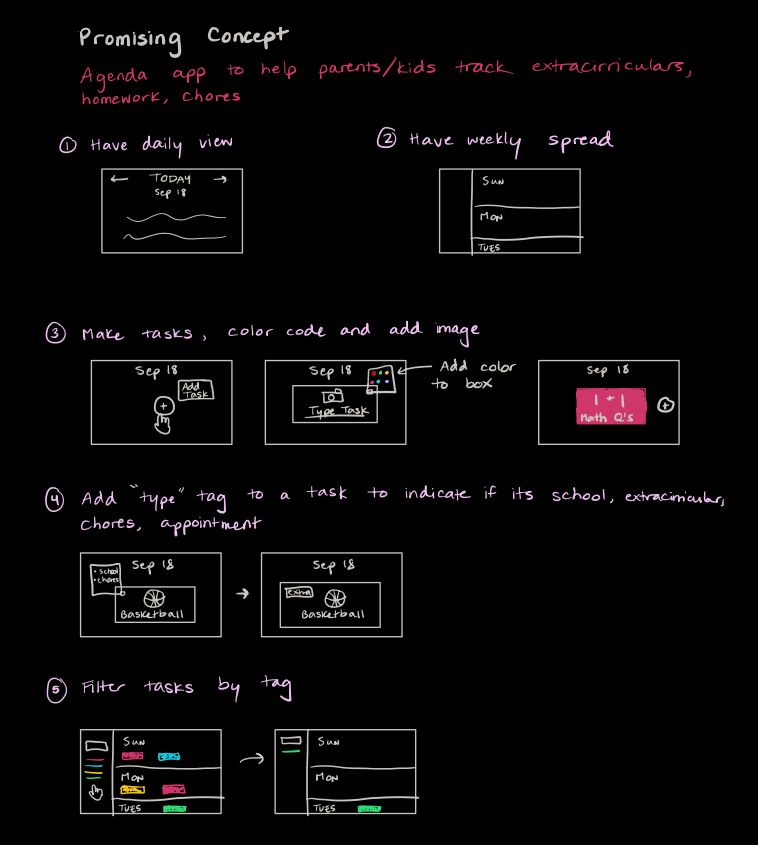 Promising Concept
Agenda app to help parents/kids track extracirriculars,
homework, chores
① Have daily view
② Have weekly spread
← TODAY →
Sep 18
SUN
MON
TUES
③ Make tasks, color code and add image
Sep 18
Add
Task
+
Sep 18
Type Task
← Add color
to box
Sep 18
1 + 1
Math Q's
+
④ Add "type" tag to a task to indicate if its school, extracirricular,
chores, appointment
Sep 18
• school
• chores
Basketball
→
Sep 18
extra
Basketball
⑤ Filter tasks by tag
SUN
MON
TUES
→
SUN
MON
TUES